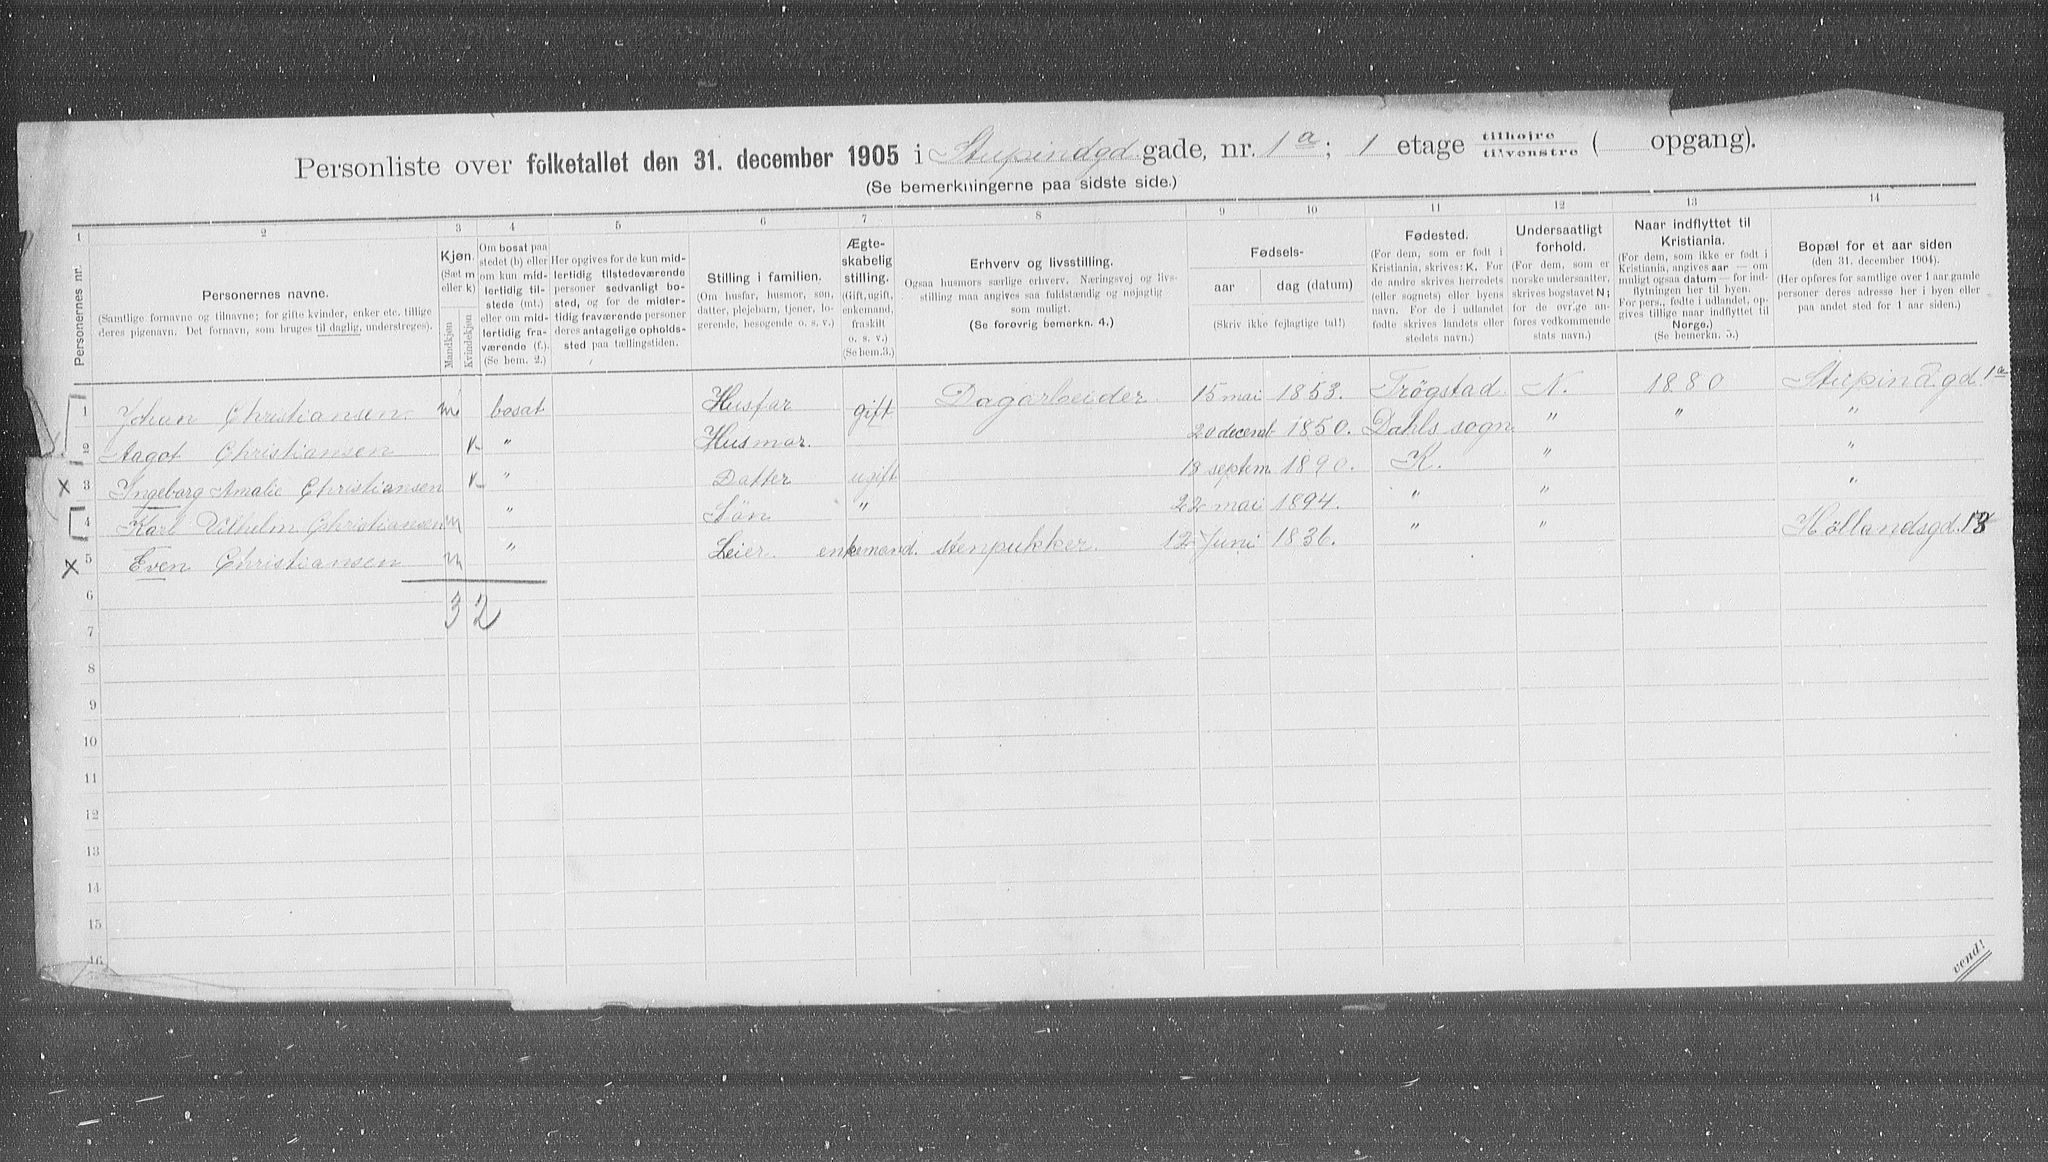 Personliste over folketallet den 31. december 1905 i Stupindgd. gade, nr. 1a; 1 etage tilhøire tilvenstre ( opgang).
(Se bemerkningerne paa sidste side.)
1 2 3 4 5 6 7 8 9 10 11 12 13 14
Personernes nr.
Personernes navne.
(Samtlige fornavne og tilnavne; for gifte kvinder, enker etc. tillige deres pigenavn. Det fornavn, som bruges til daglig, understreges).
Kjøn.
(Sæt m eller k)
Mandkjøn
Kvindekjøn
Om bosat paa stedet (b) eller om kun midlertidig tilstede (mt.) eller om midlertidig fraværende (f.) (Se bem. 2.)
Her opgives for de kun midlertidig tilstedeværende personer sedvanligt bosted, og for de midlertidig fraværende personer deres antagelige opholdssted paa tællingstiden.
Stilling i familien.
(Om husfar, husmor, søn, datter, plejebarn, tjener, logerende, besøgende o. s. v.)
Ægteskabelig stilling.
(Gift, ugift, enkemand, fraskilt o. s. v.) (Se bem.3.)
Erhverv og livsstilling.
Ogsaa husmors særlige erhverv. Næringsvej og livsstilling maa angives saa fuldstændig og nøjagtig som muligt.
(Se forøvrig bemerkn. 4.)
Fødsels-
aar dag (datum)
(Skriv ikke fejlagtige tal!)
Fødested.
(For dem, som er født i Kristiania, skrives: K. For de andre skrives herredets (eller sognets) eller byens navn. For de i udlandet fødte skrives landets eller stedets navn.)
Undersaatligt forhold.
(For dem, som er norske undersaatter, skrives bogstavet N; for de øvrige anføres vedkommende stats navn.)
Naar indflyttet til Kristiania.
(For dem, som ikke er født i Kristiania, angives aar — om muligt ogsaa datum — for indflytningen her til byen. For pers., fødte i udlandet, opgives tillige naar indflyttet til Norge.)
(Se bemerkn. 5.)
Bopæl for et aar siden
(den 31. december 1904).
(Her opføres for samtlige over 1 aar gamle personer deres adresse her i byen eller paa andet sted for 1 aar siden.)
1 Johan Christiansen m bosat Husfar gift Dagarbeider 15 mai 1853. Trøgstad N. 1880 Stupindgd 1a
2 Aagot Christiansen k " Husmor. 20 decemb 1850. Dahls sogn " " "
x 3 Ingeborg Amalie Christiansen k " Datter ugift 18 septem 1890. K. " "
4 Karl Vilhelm Christiansen m " Søn " 22 mai 1894. " " "
x 5 Even Christiansen m " Leier. enkemand. stenpukker. 12 Juni 1836. " " Hollandsgd. 13
3 2
6
7
8
9
10
11
12
13
14
15
16
vend!